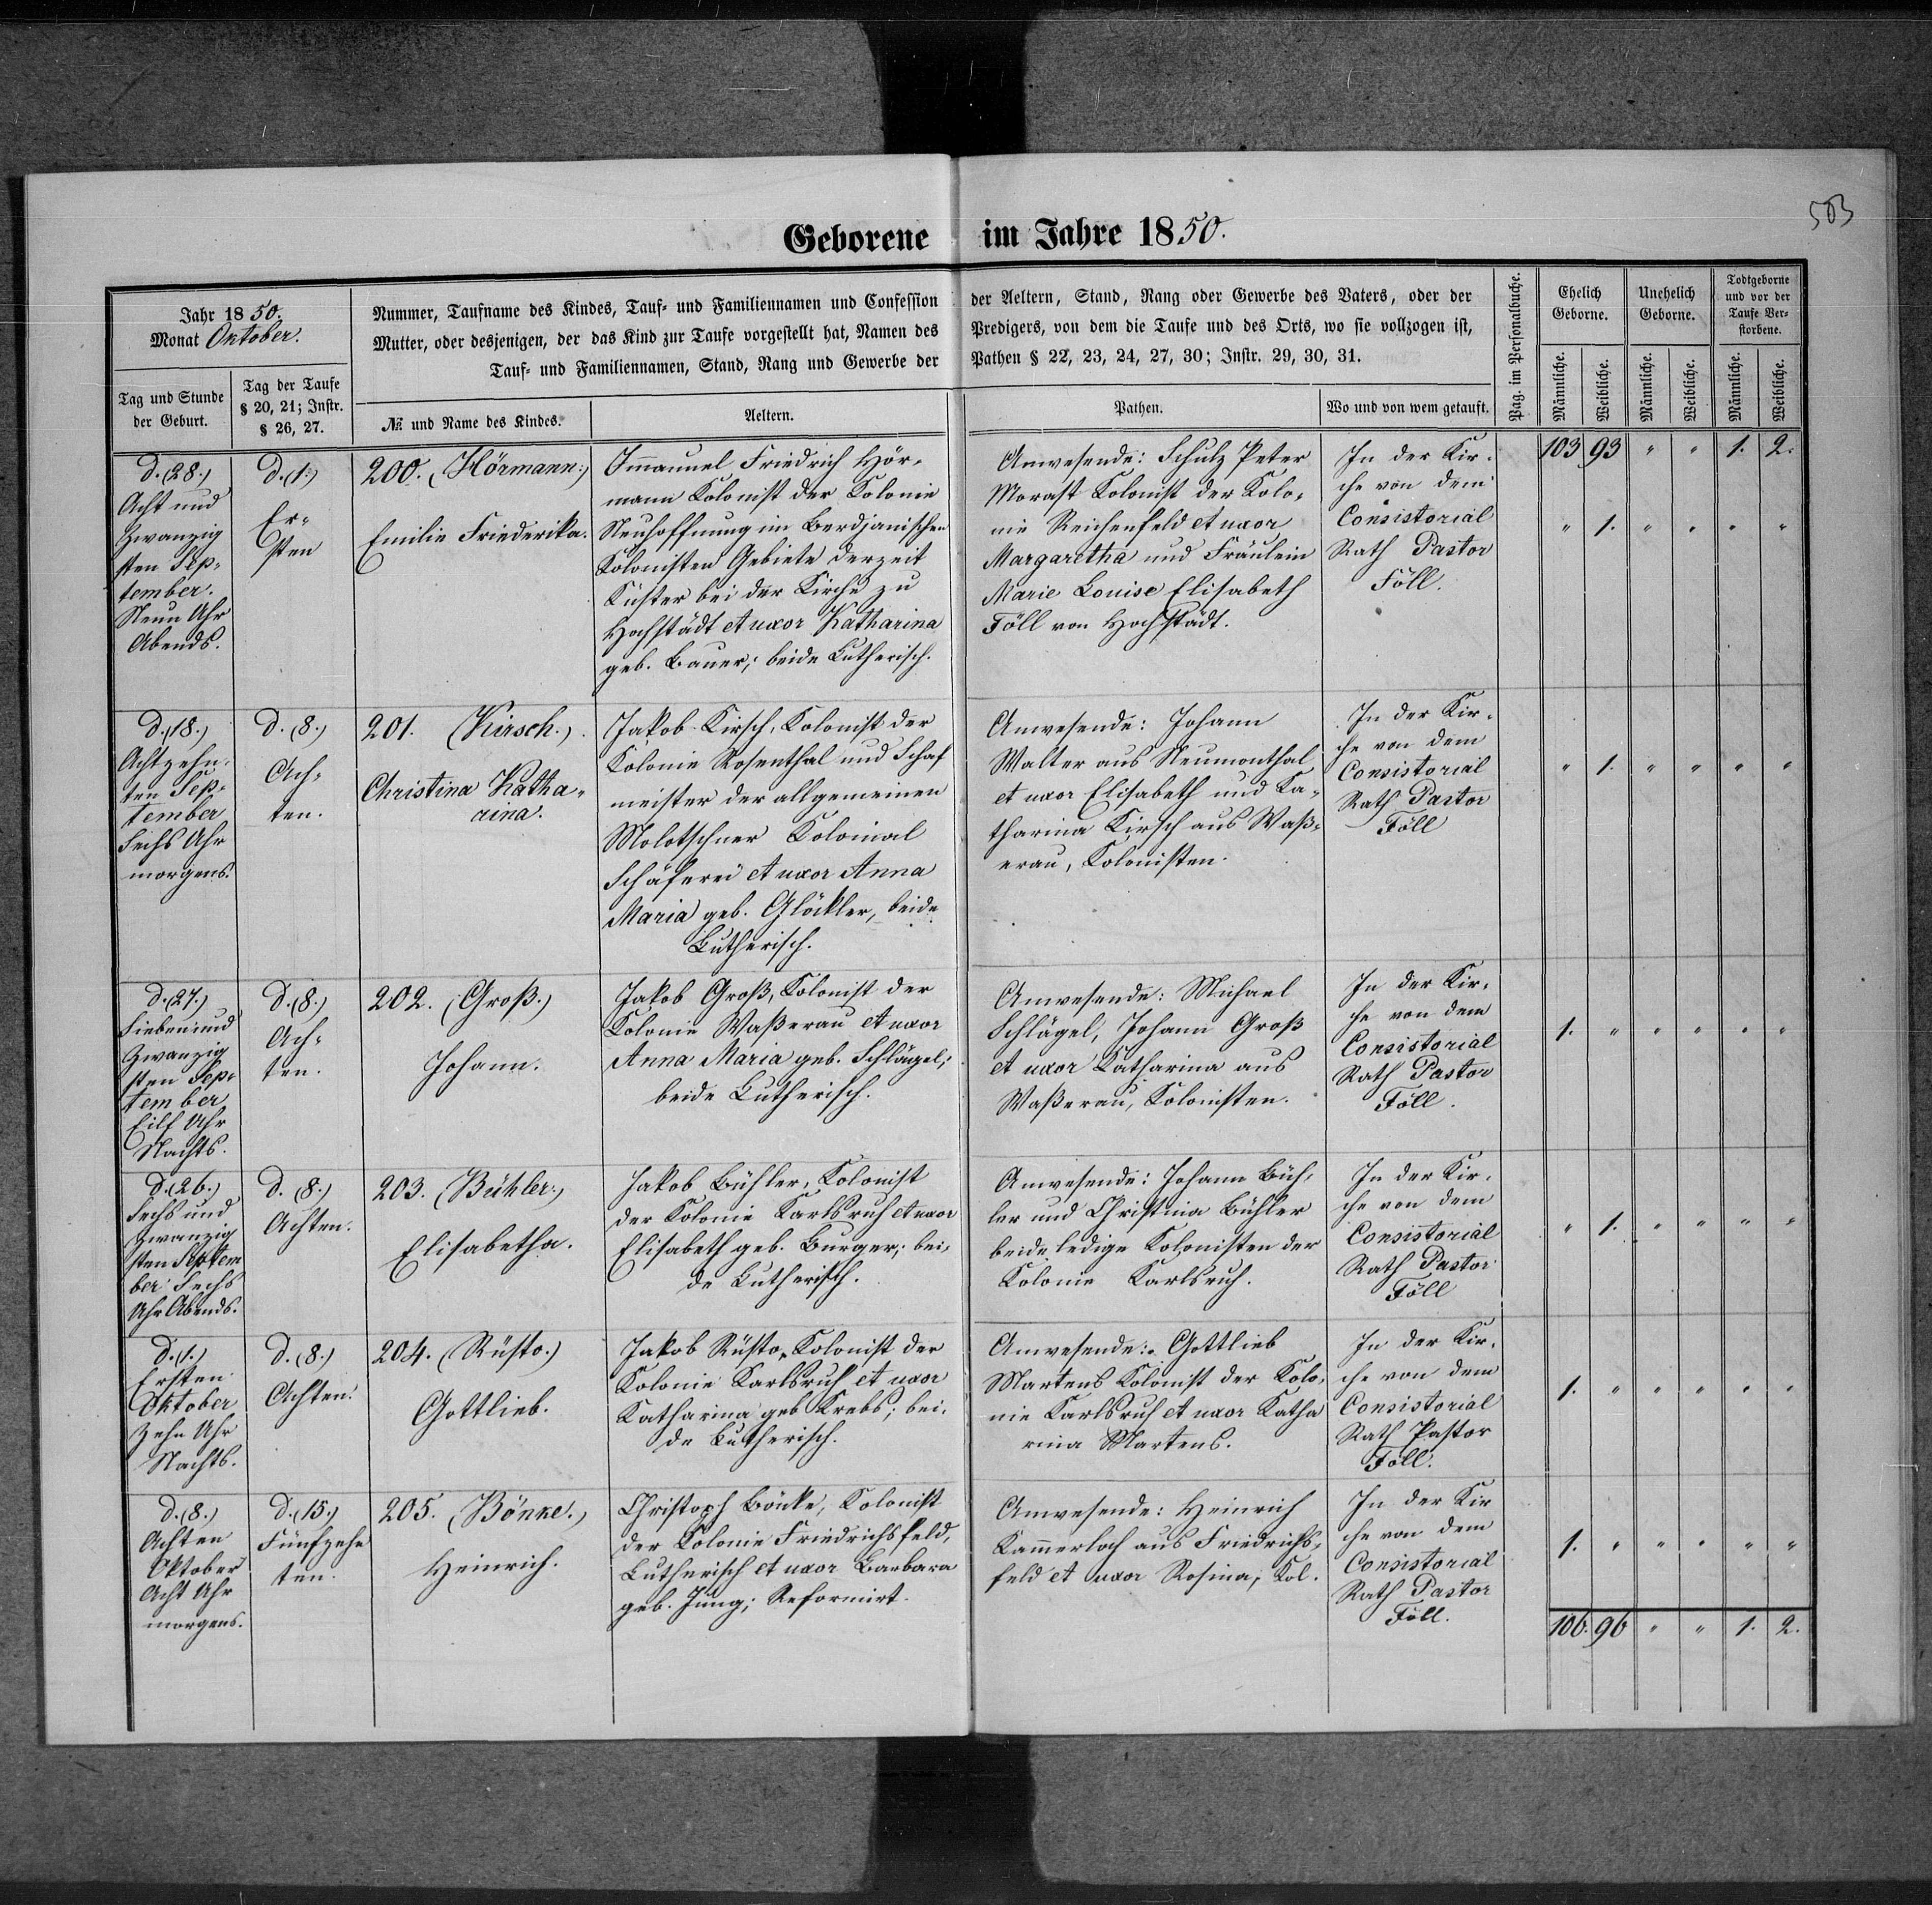 503
Geborene im Jahre 1850.
Jahr 1850.
Monat Oktober.
Tag und Stunde
der Geburt.
Tag der Taufe
§ 20, 21; Instr.
§ 26, 27.
Nummer, Taufname des Kindes, Tauf- und Familiennamen und Confession
Mutter, oder desjenigen, der das Kind zur Taufe vorgestellt hat, Namen des
Tauf- und Familiennamen, Stand, Rang und Gewerbe der
№ und Name des Kindes.
Aeltern.
der Aeltern, Stand, Rang oder Gewerbe des Vaters, oder der
Predigers, von dem die Taufe und des Orts, wo sie vollzogen ist,
Pathen § 22, 23, 24, 27, 30; Instr. 29, 30, 31.
Pathen.
Wo und von wem getauft.
Pag. im Personalbuche.
Ehelich
Geborne.
Unehelich
Geborne.
Todtgeborne
und vor der
Taufe Ver-
storbene.
Männliche.
Weibliche.
Männliche.
Weibliche.
Männliche.
Weibliche.
103 93 " " 1. 2.
d. (28.)
Acht und
zwanzig
sten Sep-
tember.
Neun Uhr
Abends.
d. (1.)
Er-
sten
200. (Hörmann.)
Emilie Friederika.
Immanuel Friedrich Hör-
mann Kolonist der Kolonie
Neuhoffnung im Berdjanischen
Kolonisten Gebiete derzeit
Küster bei der Kirche zu
Hochstädt et uxor Katharina
geb. Bauer; beide Lutherisch.
Anwesende: Schulz Peter
Morast Kolonist der Kolo-
nie Reichenfeld et uxor
Margaretha und Fräulein
Marie Louise Elisabeth
Föll von Hochstädt.
In der Kir-
che von dem
Consistorial
Rath Pastor
Föll.
" 1. " " " "
d. (18.)
Achtzehn-
ten Sep-
tember
Sechs Uhr
morgens.
d. (8.)
Ach-
ten.
201. (Kirsch.)
Christina Katha-
rina.
Jakob Kirsch, Kolonist der
Kolonie Rosenthal und Schaf
meister der allgemeinen
Molotschner Kolonial
Schäferei et uxor Anna
Maria geb. Glöckler, beide
Lutherisch.
Anwesende: Johann
Walter aus Neumonthal
et uxor Elisabeth und Ka-
tharina Kirsch aus Waß-
erau, Kolonisten.
In der Kir-
che von dem
Consistorial
Rath Pastor
Föll
" 1. " " " "
d. (27.)
Sieben und
zwanzig
sten Sep-
tember
Eilf Uhr
Nachts.
d. (8.)
Ach-
ten.
202. (Groß.)
Johann.
Jakob Groß, Kolonist der
Kolonie Waßerau et uxor
Anna Maria geb. Schlägel;
beide Lutherisch.
Anwesende: Michael
Schlägel, Johann Groß
et uxor Katharina aus
Waßerau, Kolonisten.
In der Kir-
che von dem
Consistorial
Rath Pastor
Föll.
1. " " " " "
d. (26.)
Sechs und
zwanzig
sten Septem
ber Sechs
Uhr Abends.
d. (8.)
Achten.
203. (Bühler.)
Elisabetha.
Jakob Bühler, Kolonist
der Kolonie Karlsruh et uxor
Elisabeth geb. Burger; bei-
de Lutherisch.
Anwesende: Johann Büh-
ler und Christina Bühler
beide ledige Kolonisten der
Kolonie Karlsruh.
In der Kir-
che von dem
Consistorial
Rath Pastor
Föll
" 1. " " " "
d. (1.)
Ersten
Oktober
Zehn Uhr
Nachts.
d. (8.)
Achten.
204. (Rüsto.)
Gottlieb.
Jakob Rüsto, Kolonist der
Kolonie Karlsruh et uxor
Katharina geb Krebs; bei-
de Lutherisch.
Anwesende: Gottlieb
Martens Kolonist der Kolo-
nie Karlsruh et uxor Katha
rina Martens.
In der Kir-
che von dem
Consistorial
Rath Pastor
Föll.
1. " " " " "
d. (8.)
Achten
Oktober
Acht Uhr
morgens.
d. (15.)
Fünfzehn
ten.
205. (Bönke.)
Heinrich.
Christoph Bönke, Kolonist
der Kolonie Friedrichsfeld,
Lutherisch et uxor Barbara
geb. Jung; Reformirt.
Anwesende: Heinrich
Kammerloch aus Friedrichs-
feld et uxor Rosina, Kol.
In der Kir
che von dem
Consistorial
Rath Pastor
Föll.
1. " " " " "
106. 96 " " 1. 2.